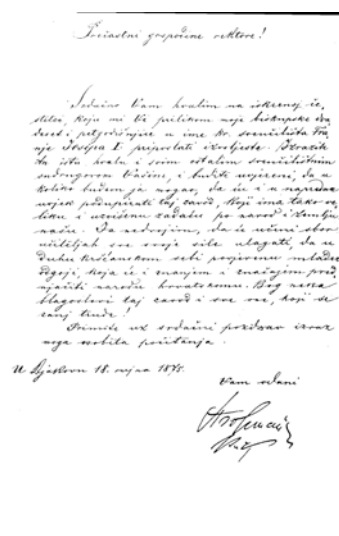 Prečastni gospodine rektore!
Srdačno Vam hvalim na iskrenoj če-
stitci, koju mi Ve prilikom moje biskupske dva-
deset i petgodišnjice u ime kr. sveučilišta Fra-
nje Josipa I. pripos­lati izvoljeste. Izrazite
tu istu hvalu i svim ostalim sveučilištnim
sudrugovom Vašim, i budite uvjereni, da u
koliko budem ja mogao, da ću i u napredak
uvjek podupirati taj zavod, koji ima tako ve-
liku i uzvišenu zadaću po narod i zemlju
našu. Ja se nadam, da će učeni sbor
učiteljah sve svoje sile ulagati, da u
duhu kršćanskom sebi povjerenu mladež
odgoji, koja će i znanjem i značajem pred-
njačiti narodu hrvatskomu. Bog neka
blagoslovi taj zavod i sve one, koji se
zanj trude!
Primite uz srdačni pozdrav izraz
moga osobita počitanja.
U Djakovu 18. rujna 1875.
Vam odani